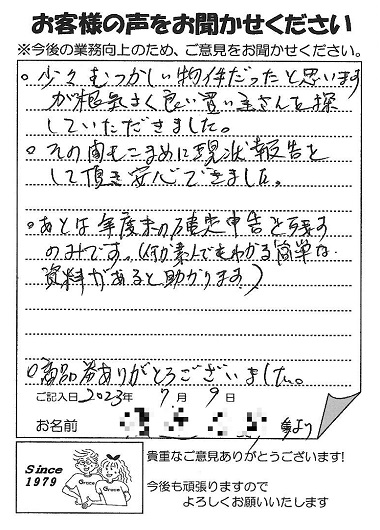 お客様の声をお聞かせください
※今後の業務向上のため、ご意見をお聞かせください。
○ 少々むつかしい物件だったと思います
が根気よく良い買い主さんを探
していただきました。
○ その間もこまめに現状報告を
して頂き安心できました。
○ あとは年度末の確定申告を残す
のみです。(何か素人でもわかる簡単な
資料があると助かります)
○ 商品券ありがとうございました。
ご記入日 2023年 7月 9日
お名前 より
Since
1979
Grace
Grace
貴重なご意見ありがとうございます!
今後も頑張りますので
よろしくお願いいたします